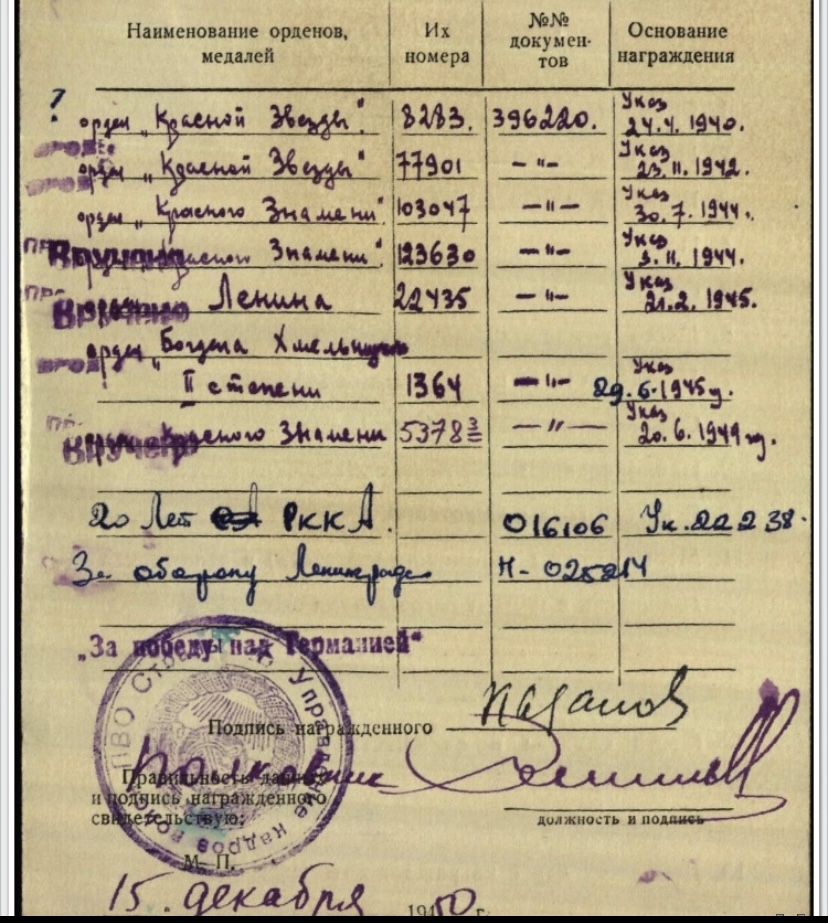 Наименование орденов, медалей Их номера №№ докумен-тов Основание награждения
?
орден „Красной Звезды" 8283. 396220. Указ 24.4. 1940.
орден „Красной Звезды" 77901 — " — Указ 23.11. 1942.
орден „Красного Знамени" 103047 — " — Указ 30.7. 1944.
Вручено Красного Знамени" 123630 — " — Указ 3.11. 1944.
Вручено Ленина 22435 — " — Указ 21.2. 1945.
орден „Богдана Хмельницкого
II степени 1364 — " — Указ 29.6.1945 г.
Красного Знамени 5378 — " — Указ 20.6.1949 г.
20 Лет РККА. 016106 Ук. 22 2 38.
За оборону Ленинграда Н-025214
„За победу над Германией"
Подпись награжденного
Правильность данных полковник
и подпись награжденного
свидетельствую:
должность и подпись
М. П.
Управление кадров войск ПВО
15. декабря 1950 г.